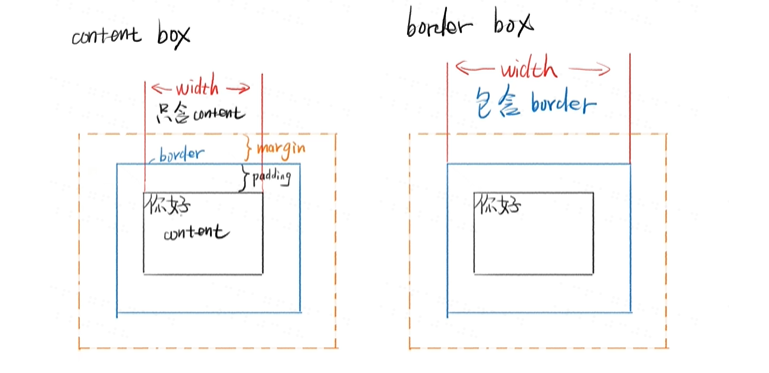 content box
width
只含content
border
margin
padding
你好
content
border box
width
包含border
你好